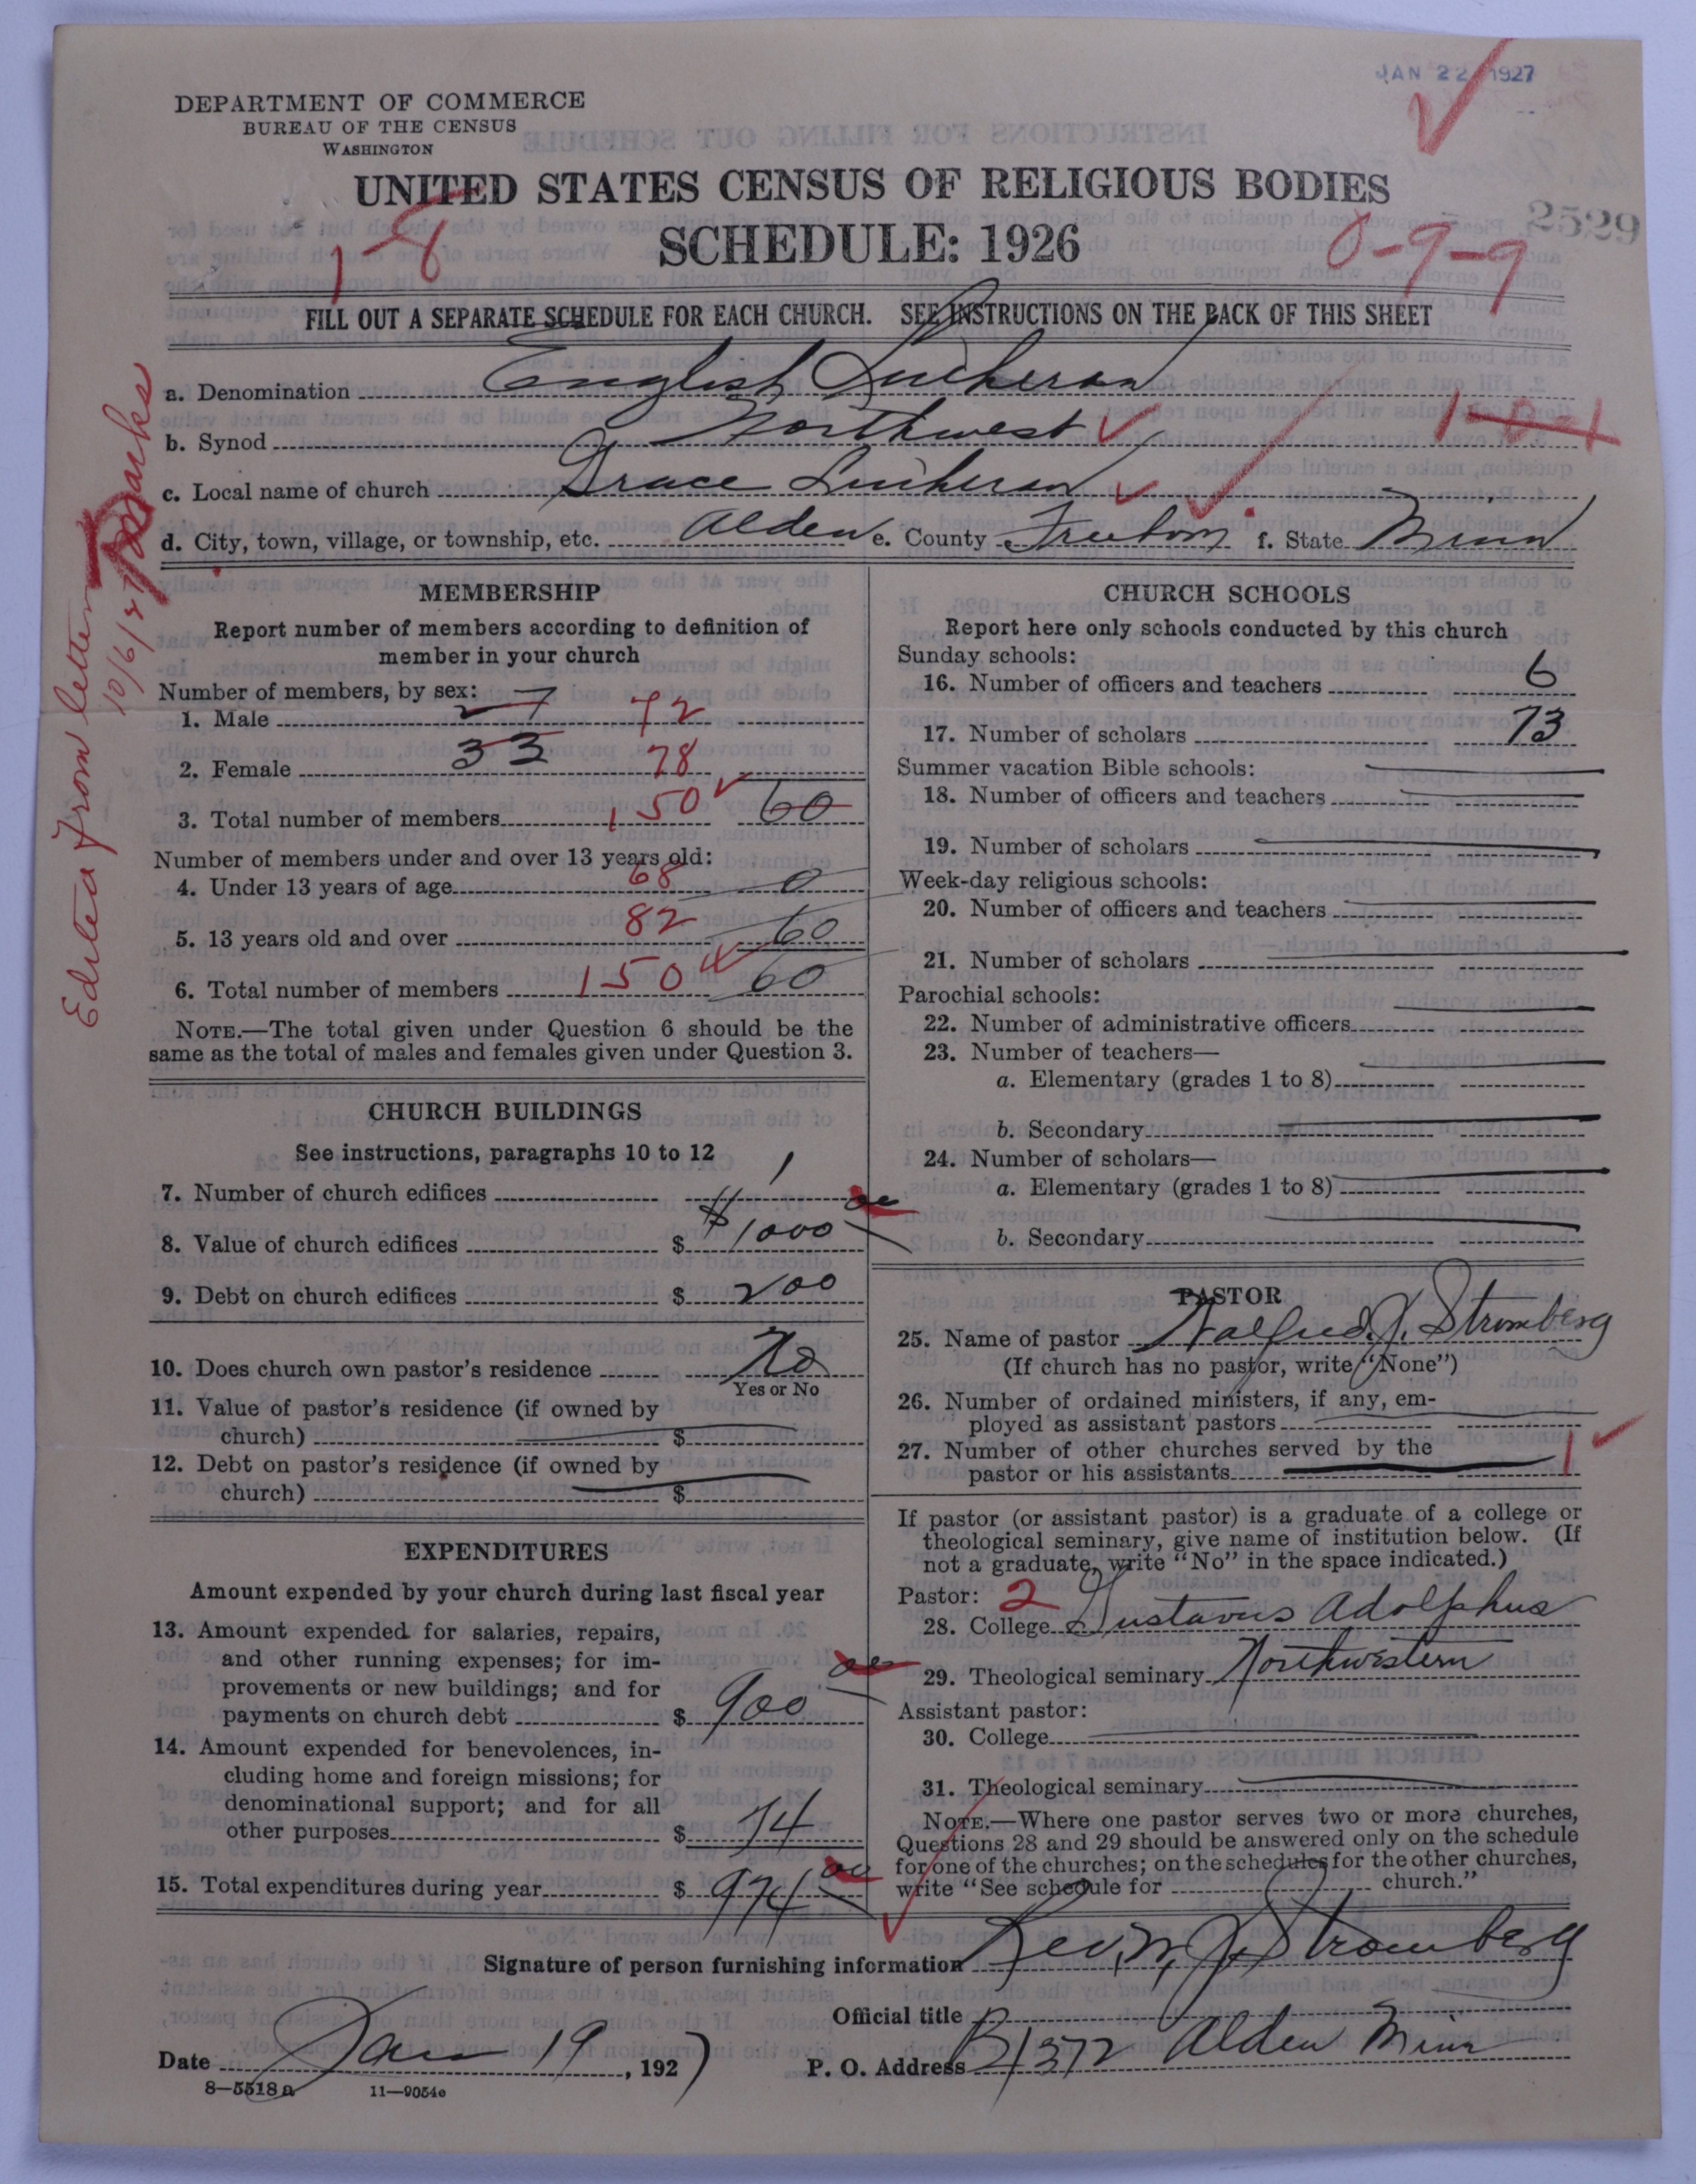 JAN 22 1927
DEPARTMENT OF COMMERCE
BUREAU OF THE CENSUS
WASHINGTON
UNITED STATES CENSUS OF RELIGIOUS BODIES
2529
1-8
SCHEDULE: 1926
0-9-9
FILL OUT A SEPARATE SCHEDULE FOR EACH CHURCH. SEE INSTRUCTIONS ON THE BACK OF THIS SHEET
a. Denomination English Lutheran
b. Synod Northwest
c. Local name of church Grace Lutheran
d. City, town, village, or township, etc. Alden e. County Freeborn f. State Minn
Edited from letter
10/6/27
MEMBERSHIP
Report number of members according to definition of
member in your church
Number of members, by sex:
1. Male 27 72
2. Female 33 78
3. Total number of members 150 60
Number of members under and over 13 years old:
4. Under 13 years of age 68 0
5. 13 years old and over 82 60
6. Total number of members 150 60
NOTE.—The total given under Question 6 should be the
same as the total of males and females given under Question 3.
CHURCH BUILDINGS
See instructions, paragraphs 10 to 12
7. Number of church edifices 1
8. Value of church edifices $ $1000 00
9. Debt on church edifices $ 200
10. Does church own pastor's residence No
Yes or No
11. Value of pastor's residence (if owned by
church) $
12. Debt on pastor's residence (if owned by
church) $
EXPENDITURES
Amount expended by your church during last fiscal year
13. Amount expended for salaries, repairs,
and other running expenses; for im-
provements or new buildings; and for
payments on church debt $ 900 00
14. Amount expended for benevolences, in-
cluding home and foreign missions; for
denominational support; and for all
other purposes $ 74
15. Total expenditures during year $ 974 00
CHURCH SCHOOLS
Report here only schools conducted by this church
Sunday schools:
16. Number of officers and teachers 6
17. Number of scholars 73
Summer vacation Bible schools:
18. Number of officers and teachers
19. Number of scholars
Week-day religious schools:
20. Number of officers and teachers
21. Number of scholars
Parochial schools:
22. Number of administrative officers
23. Number of teachers—
a. Elementary (grades 1 to 8)
b. Secondary
24. Number of scholars—
a. Elementary (grades 1 to 8)
b. Secondary
PASTOR
25. Name of pastor Walfred J. Stromberg
(If church has no pastor, write "None")
26. Number of ordained ministers, if any, em-
ployed as assistant pastors
27. Number of other churches served by the
pastor or his assistants 1
If pastor (or assistant pastor) is a graduate of a college or
theological seminary, give name of institution below. (If
not a graduate, write "No" in the space indicated.)
Pastor: 2
28. College Gustavus Adolphus
29. Theological seminary Northwestern
Assistant pastor:
30. College
31. Theological seminary
NOTE.—Where one pastor serves two or more churches,
Questions 28 and 29 should be answered only on the schedule
for one of the churches; on the schedules for the other churches,
write "See schedule for church."
Signature of person furnishing information Rev. W. J. Stromberg
Official title
Date Jan 19, 1927 P. O. Address B 372 Alden Minn
8—5518a 11—9054c